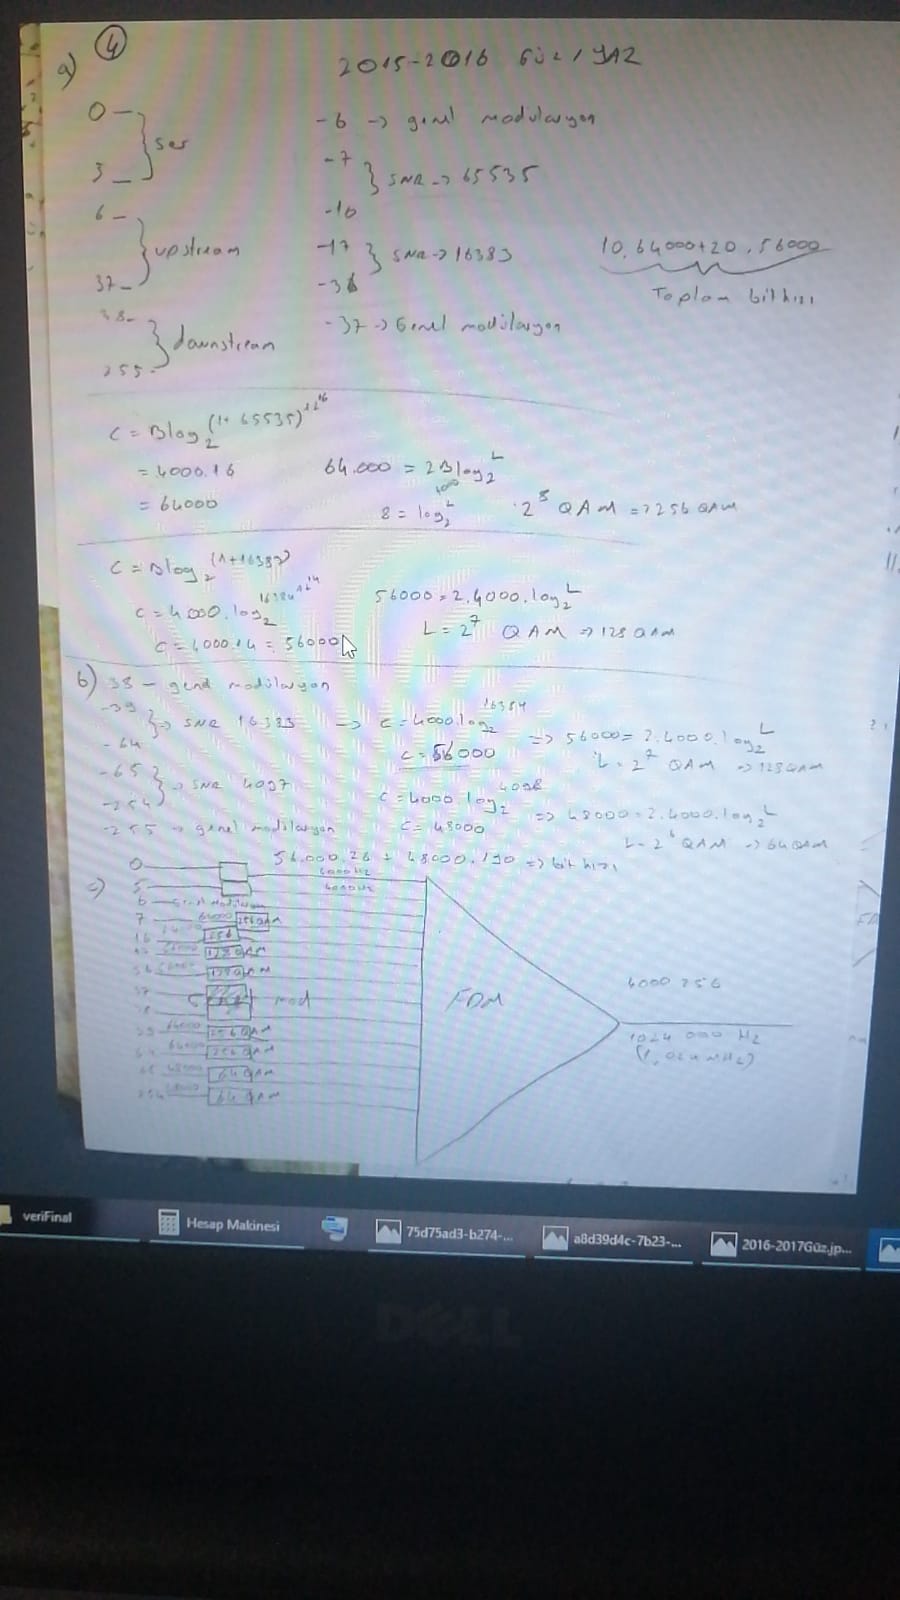 4
a)
2015-2016 GÜZ / YAZ
0 — } ses
3 —
6 — } upstream
37 —
38 — } downstream
255 -
-6 -> genel modülasyon
-7 } SNR -> 65535
-16
-17 } SNR -> 16383
-36
-37 -> Genel modülasyon
10.64000+20.56000
Toplam bit hızı
C = Blog2(1+65535)
= 4000.16
= 64000
64.000 = 2Blog2 L
4000
8 = log2 L
2^8 QAM => 256 QAM
C = Blog2(1+16383)
C = 4000.log2 16384
C = 4000.14 = 56000
56000 = 2.4000.log2 L
L = 2^7 QAM => 128 QAM
b) 38 - genel modülasyon
-39 } -> SNR 16383 -> C = 4000.log2 16384 => 56000 = 2.4000.log2 L
-64
C = 56000
L = 2^7 QAM => 128 QAM
-65 } -> SNR 4097
-254
C = 4000.log2 4098 => 48000 = 2.4000.log2 L
C = 48000
L = 2^6 QAM -> 64 QAM
-255 -> genel modülasyon
56.000.26 + 48000.190 => bit hızı
c)
0 — 4000 Hz
5 — 4000 Hz
6 — Genel Modülasyon
7 — 64000 256 QAM
16 256
128 QAM
128 QAM
37
mod
64000 256 QAM
64000 256 QAM
65 48000 64 QAM
254 64 QAM
FDM
4000 256
1024 000 Hz
(1,024 MHz)
veriFinal
Hesap Makinesi
75d75ad3-b274-...
a8d39d4c-7b23-...
2016-2017Güz.jp...
DELL